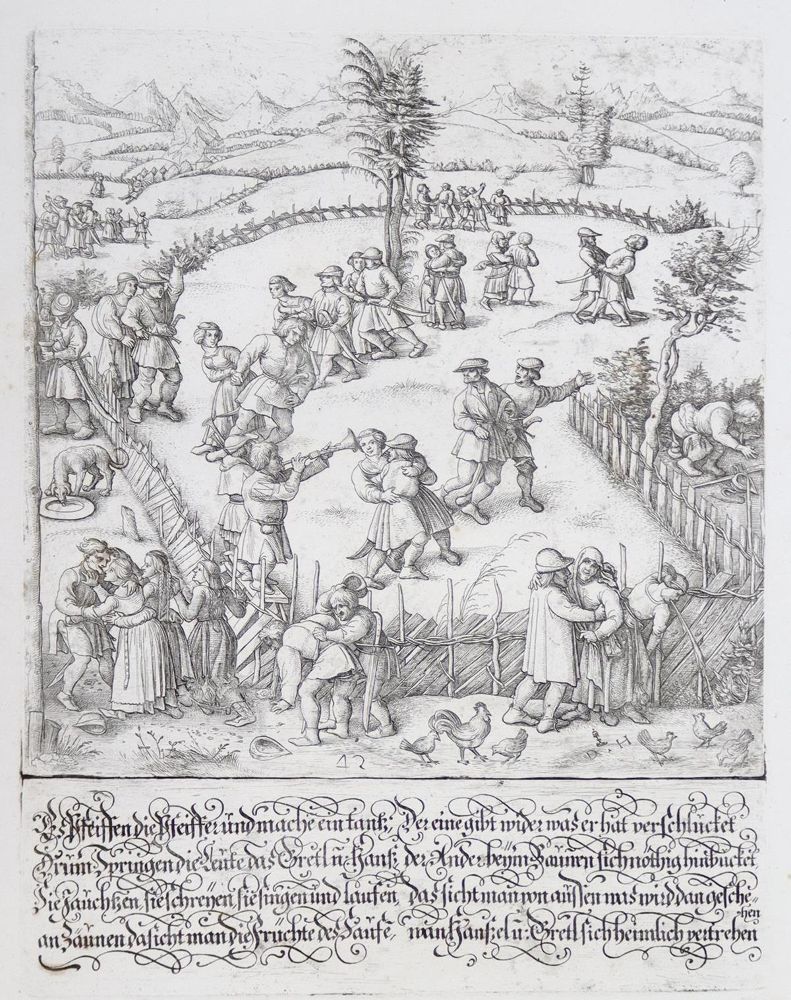 12
D H
Es Pfeiffen die Pfeiffer und mache ein tantz,
Drum Springen die Leute das Gretl u: Hansz
Sie Jauchtzen, sie schreyen, sie singen und lauffen,
an Zäunen da sicht man die Früchte des Sauffe,
Der eine gibt wider was er hat verschlucket
der Ander beym Zaunen sich nöthig hinbücket
das sicht man von aussen was wird dan gesche-
hen
wan Hanszel u: Gretl sich heimlich vertrehen